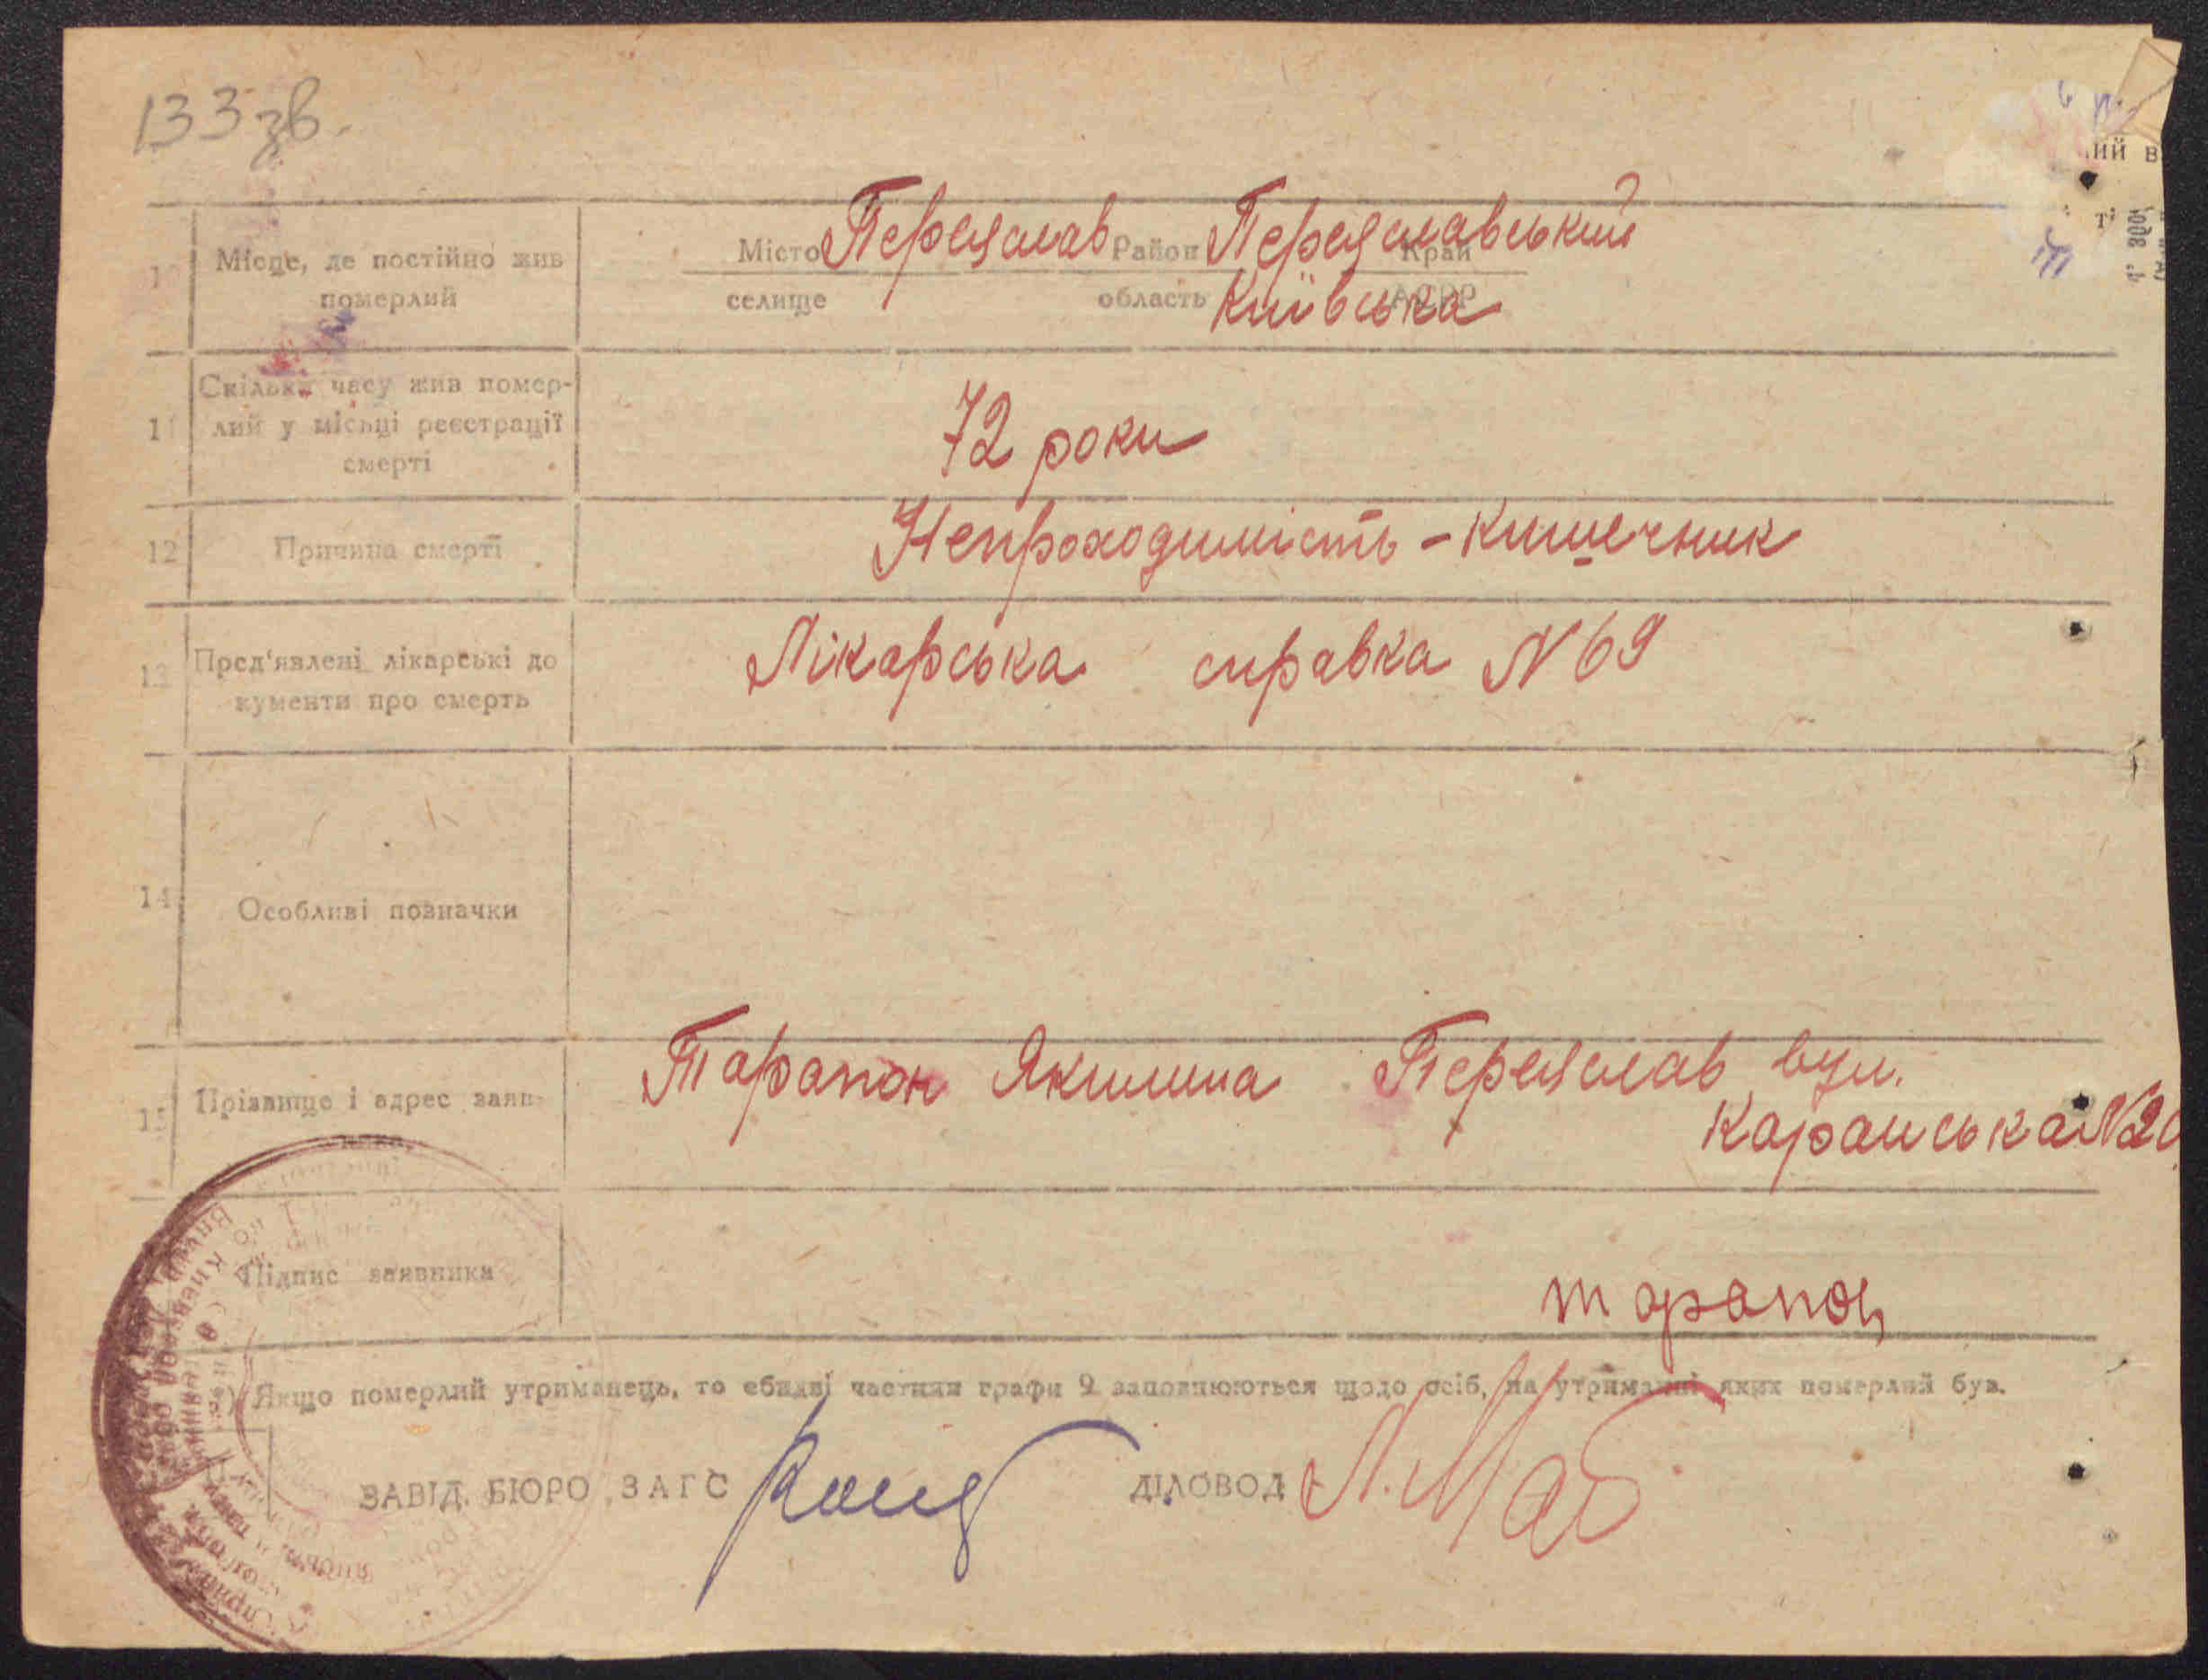 133 зв.
10 Місце, де постійно жив
померлий
Місто Переяслав Район Переяславський Край
селище область Київська АСРР
11 Скільки часу жив помер-
лий у місьці реєстрації
смерті
72 роки
12 Причина смерті Непроходимість - кишечник
13 Пред'явлені лікарські до
кументи про смерть
Лікарська справка N 69
14 Особливі позначки
15 Прізвище і адрес заяв-
ника
Тарапон Якилина Переяслав вул.
Каранська N 20
Підпис заявника тарапон
*) Якщо померлий утриманець, то обидві частини графи 9 заповнюються щодо осіб, на утриманні яких померлий був.
ЗАВІД. БЮРО ЗАГС ДІЛОВОД